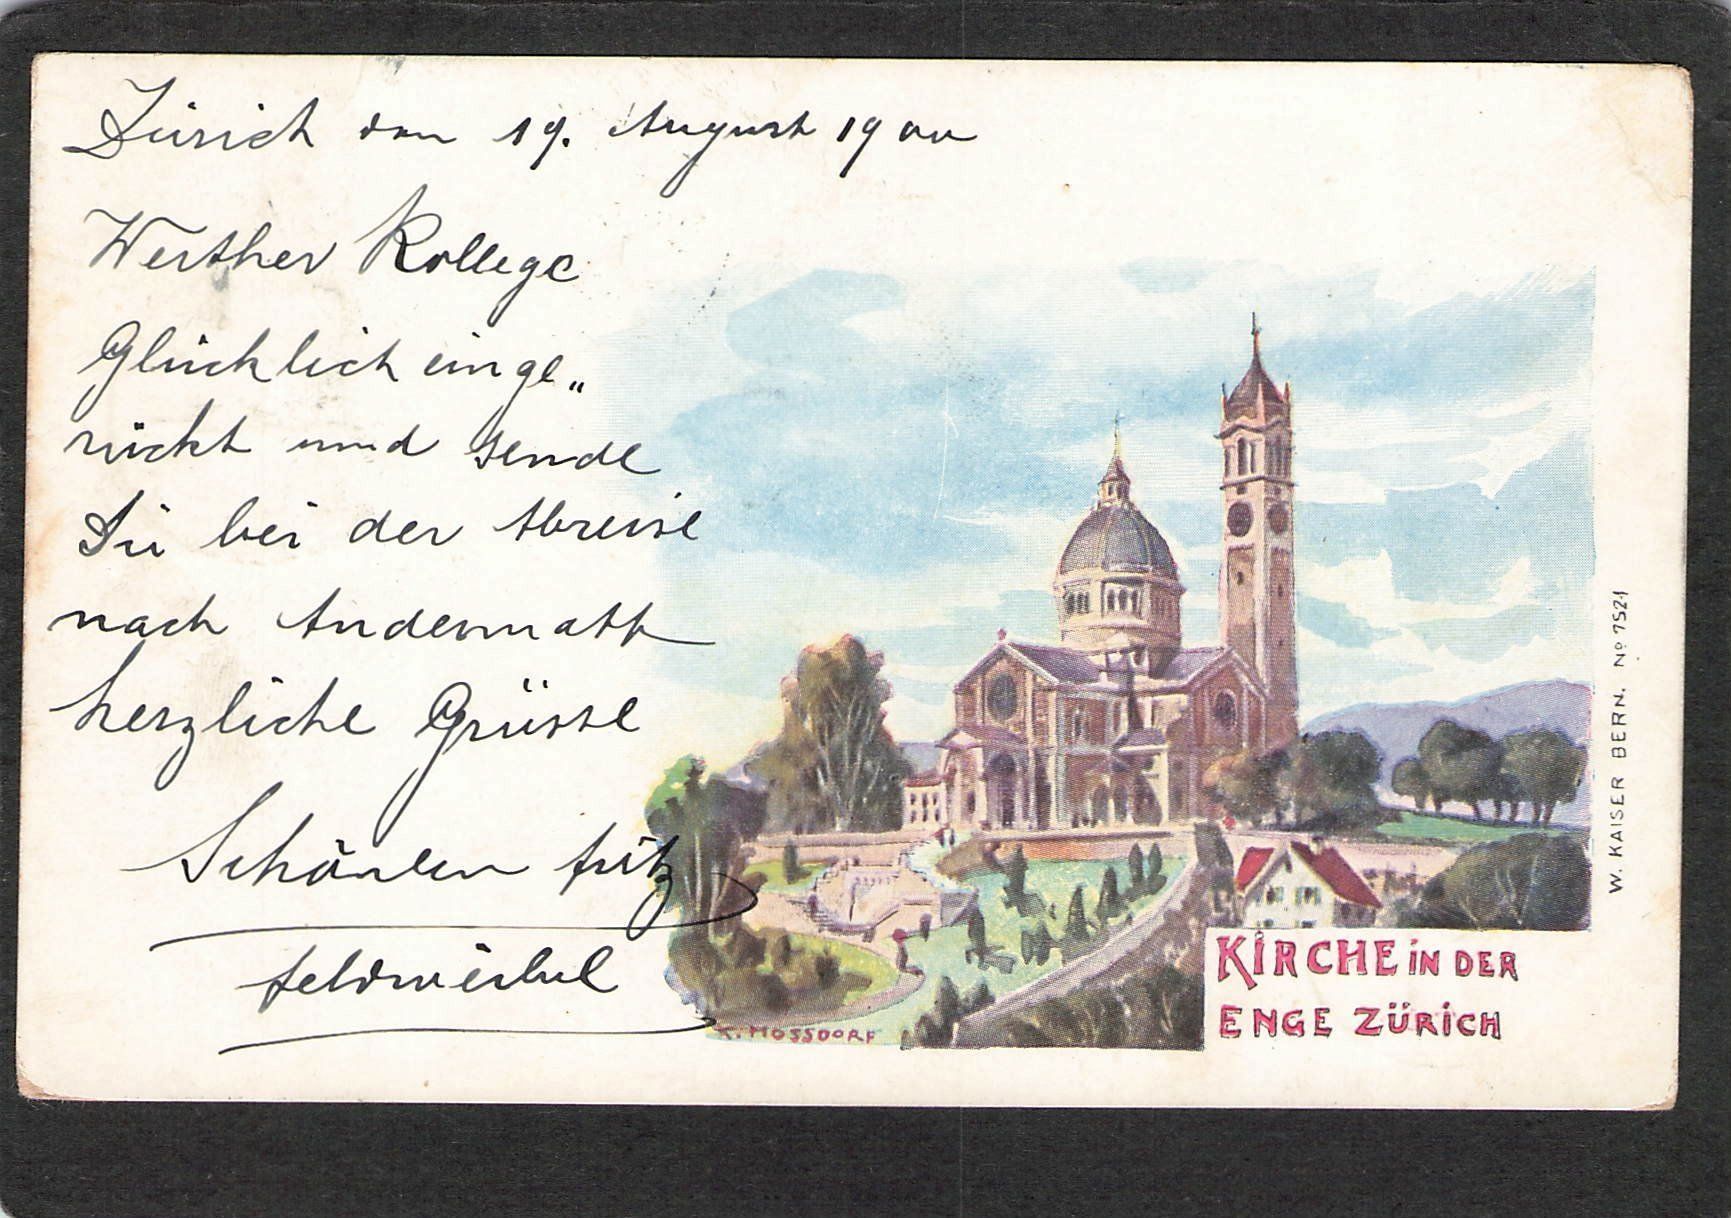 Zürich den 19. August 1900
Werther Kollege
Glücklich einge„
rückt und sende
Dir bei der Abreise
nach Andermatt
herzliche Grüsse
Fritz
Feldweibel
K. MOSSDORF
KIRCHE IN DER
ENGE ZÜRICH
W. KAISER BERN. No 7521